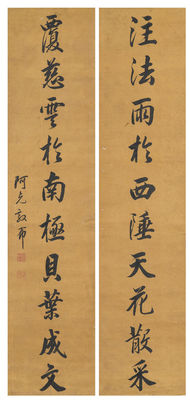 注法雨於西陲天花散采
覆慈雲於南極貝葉成文
阿克敦布